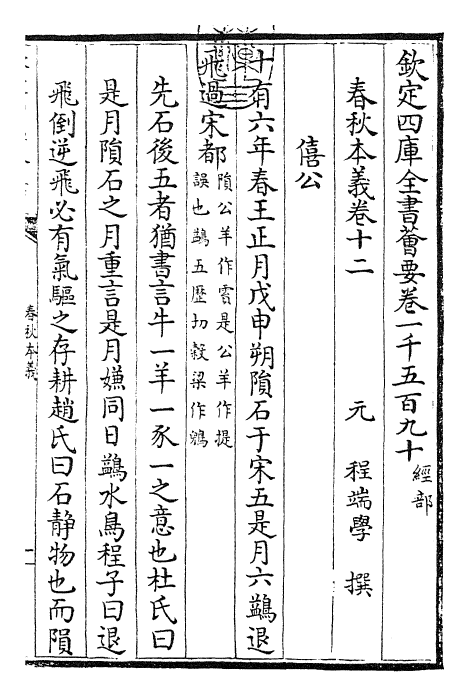 欽定四庫全書薈要卷一千五百九十經部
春秋本義卷十二
元 程端學 撰
僖公
十有六年春王正月戊申朔隕石于宋五是月六鷁退
飛過宋都隕公羊作霣是公羊作提
誤也鷁五歷切穀梁作鶂
先石後五者猶書言牛一羊一豕一之意也杜氏曰
是月隕石之月重言是月嫌同日鷁水鳥程子曰退
飛倒逆飛必有氣驅之存耕趙氏曰石静物也而隕
春秋本義
一